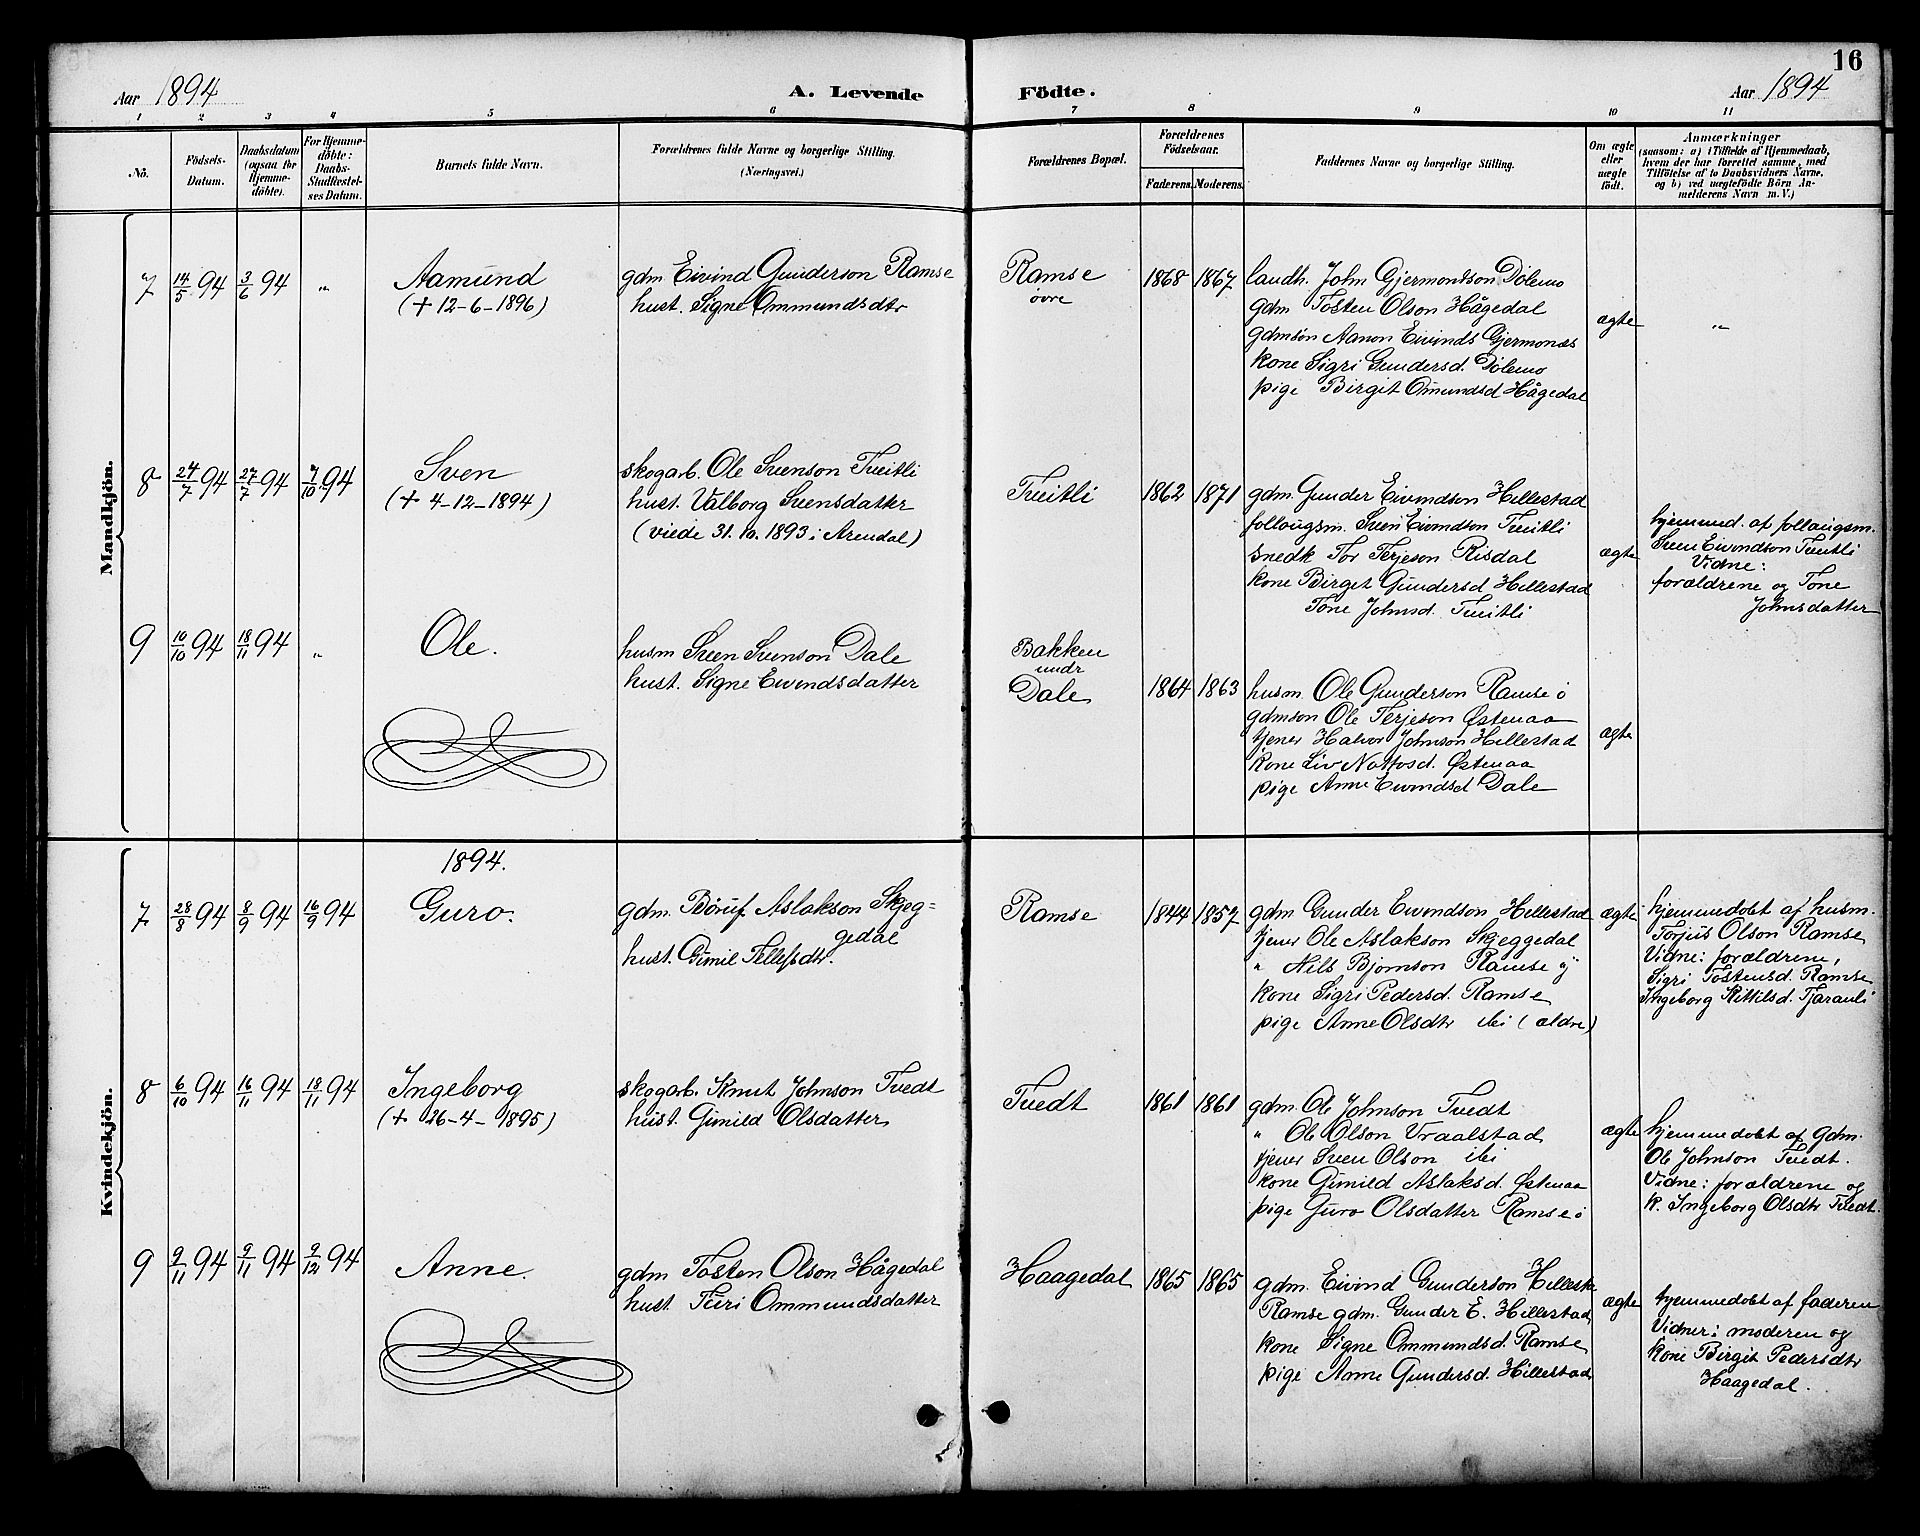 16
Aar 1894
A. Levende Födte.
Aar 1894
1 2 3 4 5 6 7 8 9 10 11
Nö.
Födsels-Datum.
Daabsdatum (ogsaa for Hjemme-döbte).
For Hjemme-döbte: Daabs-Stadfæstel-ses Datum.
Barnets fulde Navn.
Forældrenes fulde Navne og borgerlige Stilling.
(Næringsvei.)
Forældrenes Bopæl.
Forældrenes Födselsaar.
Faderens. Moderens.
Faddernes Navne og borgerlige Stilling.
Om ægte eller uægte födt.
Anmærkninger
(saasom: a) i Tilfælde af Hjemmedaab,
hvem der har forrettet samme, med
Tilföielse af to Daabsvidners Navne,
og b) ved uægtefödte Börn An-
melderens Navn m. V.)
Mandkjön.
7 14/5 94 3/6 94 „ Aamund
(+ 12-6-1896)
gdm Eivind Gunderson Ramse
hust. Signe Ommundsdtr
Ramse
övre
1868 1867
landh. John Gjermondson Dölemo
gdm Tosten Olson Hågedal
gdmsön Aanon Eivinds Gjermonæs
kone Sigri Gundersd. Dölemo
pige Birgit Omundsd Hågedal
ægte
„
8 24/7 94 27/7 94 7/10 94 Sven
(+ 4-12-1894)
skogarb. Ole Svenson Tveitli
hust. Valborg Svensdatter
(viede 31.10.1893 i Arendal)
Tveitli
1862 1871
gdm. Gunder Eivindson Hillestad
follougsm. Sven Eivindson Tveitli
snedk Tor Terjeson Risdal
kone Birget Gundersd Hillestad
Tone Johnsd. Tveitli
ægte
hjemmed. af follaugsm.
Sven Eivindson Tveitli
Vidne:
forældrene og Tone
Johnsdatter
9 10/10 94 18/11 94 „ Ole.
husm Sven Svenson Dale
hust. Signe Eivindsdatter
Bakken
undr
Dale
1864 1863
husm. Ole Gunderson Ramse ö
gdmson Ole Terjeson Østenaa
tjener Halvor Johnson Hillestad
kone Liv Nottosd. Østenaa
pige Anne Eivindsd Dale
ægte
Kvindekjön.
1894.
7 28/8 94 8/9 94 16/9 94 Guro.
gdm. Böruf Aslakson Skjeg=
gedal
hust. Gunil Tellefsdtr.
Ramse
1844 1857
gdm Gunder Eivindson Hillestad
tjener Ole Aslakson Skjeggedal
„ Nils Bjornson Ramse y
kone Sigri Pedersd. Ramse
pige Anne Olsdtr ibi (ældre)
ægte
hjemmedobt af husm.
Torjus Olson Ramse
Vidne: forældrene,
Sigri Tostensd. Ramse
Ingeborg Kittilsd. Tjaranli
8 6/10 94 16/11 94 18/11 94 Ingeborg
(+ 26-4-1895)
skogarb. Knut Johnson Tvedt
hust. Gunild Olsdatter
Tvedt
1861 1861
gdm. Ole Johnson Tvedt
„ Ole Olson Vraalstad
tjener Sven Olson ibi
kone Gunild Aslaksd. Østenaa
pige Guro Olsdatter Ramse ö
ægte
hjemmedobt af gdm.
Ole Johnson Tvedt.
Vidne: forældrene og
k. Ingeborg Olsdtr Tvedt.
9 9/11 94 9/11 94 9/12 94 Anne.
gdm Tosten Olson Hågedal
hust. Turi Ommundsdatter
Haagedal
1865 1865
gdm. Eivind Gunderson Hillest
Ramse gdm. Gunder E. Hillestad
kone Signe Ommundsd. Ramse
pige Anne Gundersd. Hillestad
ægte
hjemmedobt af faderen
Vidner: moderen og
kone Birgit Pedersdtr
Haagedal.